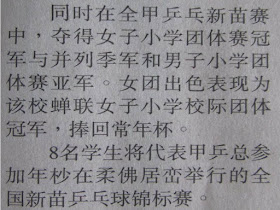 同时在全甲乒乓新苗赛
中，夺得女子小学团体赛冠
军与并列季军和男子小学团
体赛亚军。女团出色表现为
该校蝉联女子小学校际团体
冠军，捧回常年杯。
8名学生将代表甲乒总参
加年杪在柔佛居銮举行的全
国新苗乒乓球锦标赛。